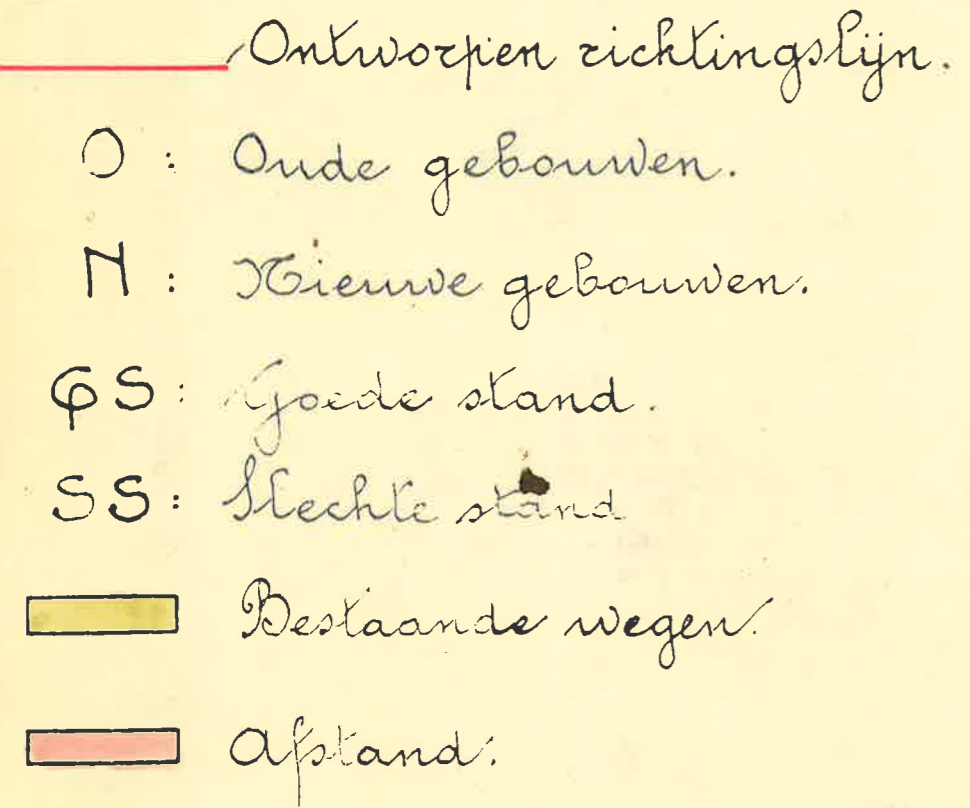 Ontworpen richtingslijn.
O : Oude gebouwen.
N : Nieuwe gebouwen.
GS : Goede stand.
SS : Slechte stand
Bestaande wegen.
Afstand.